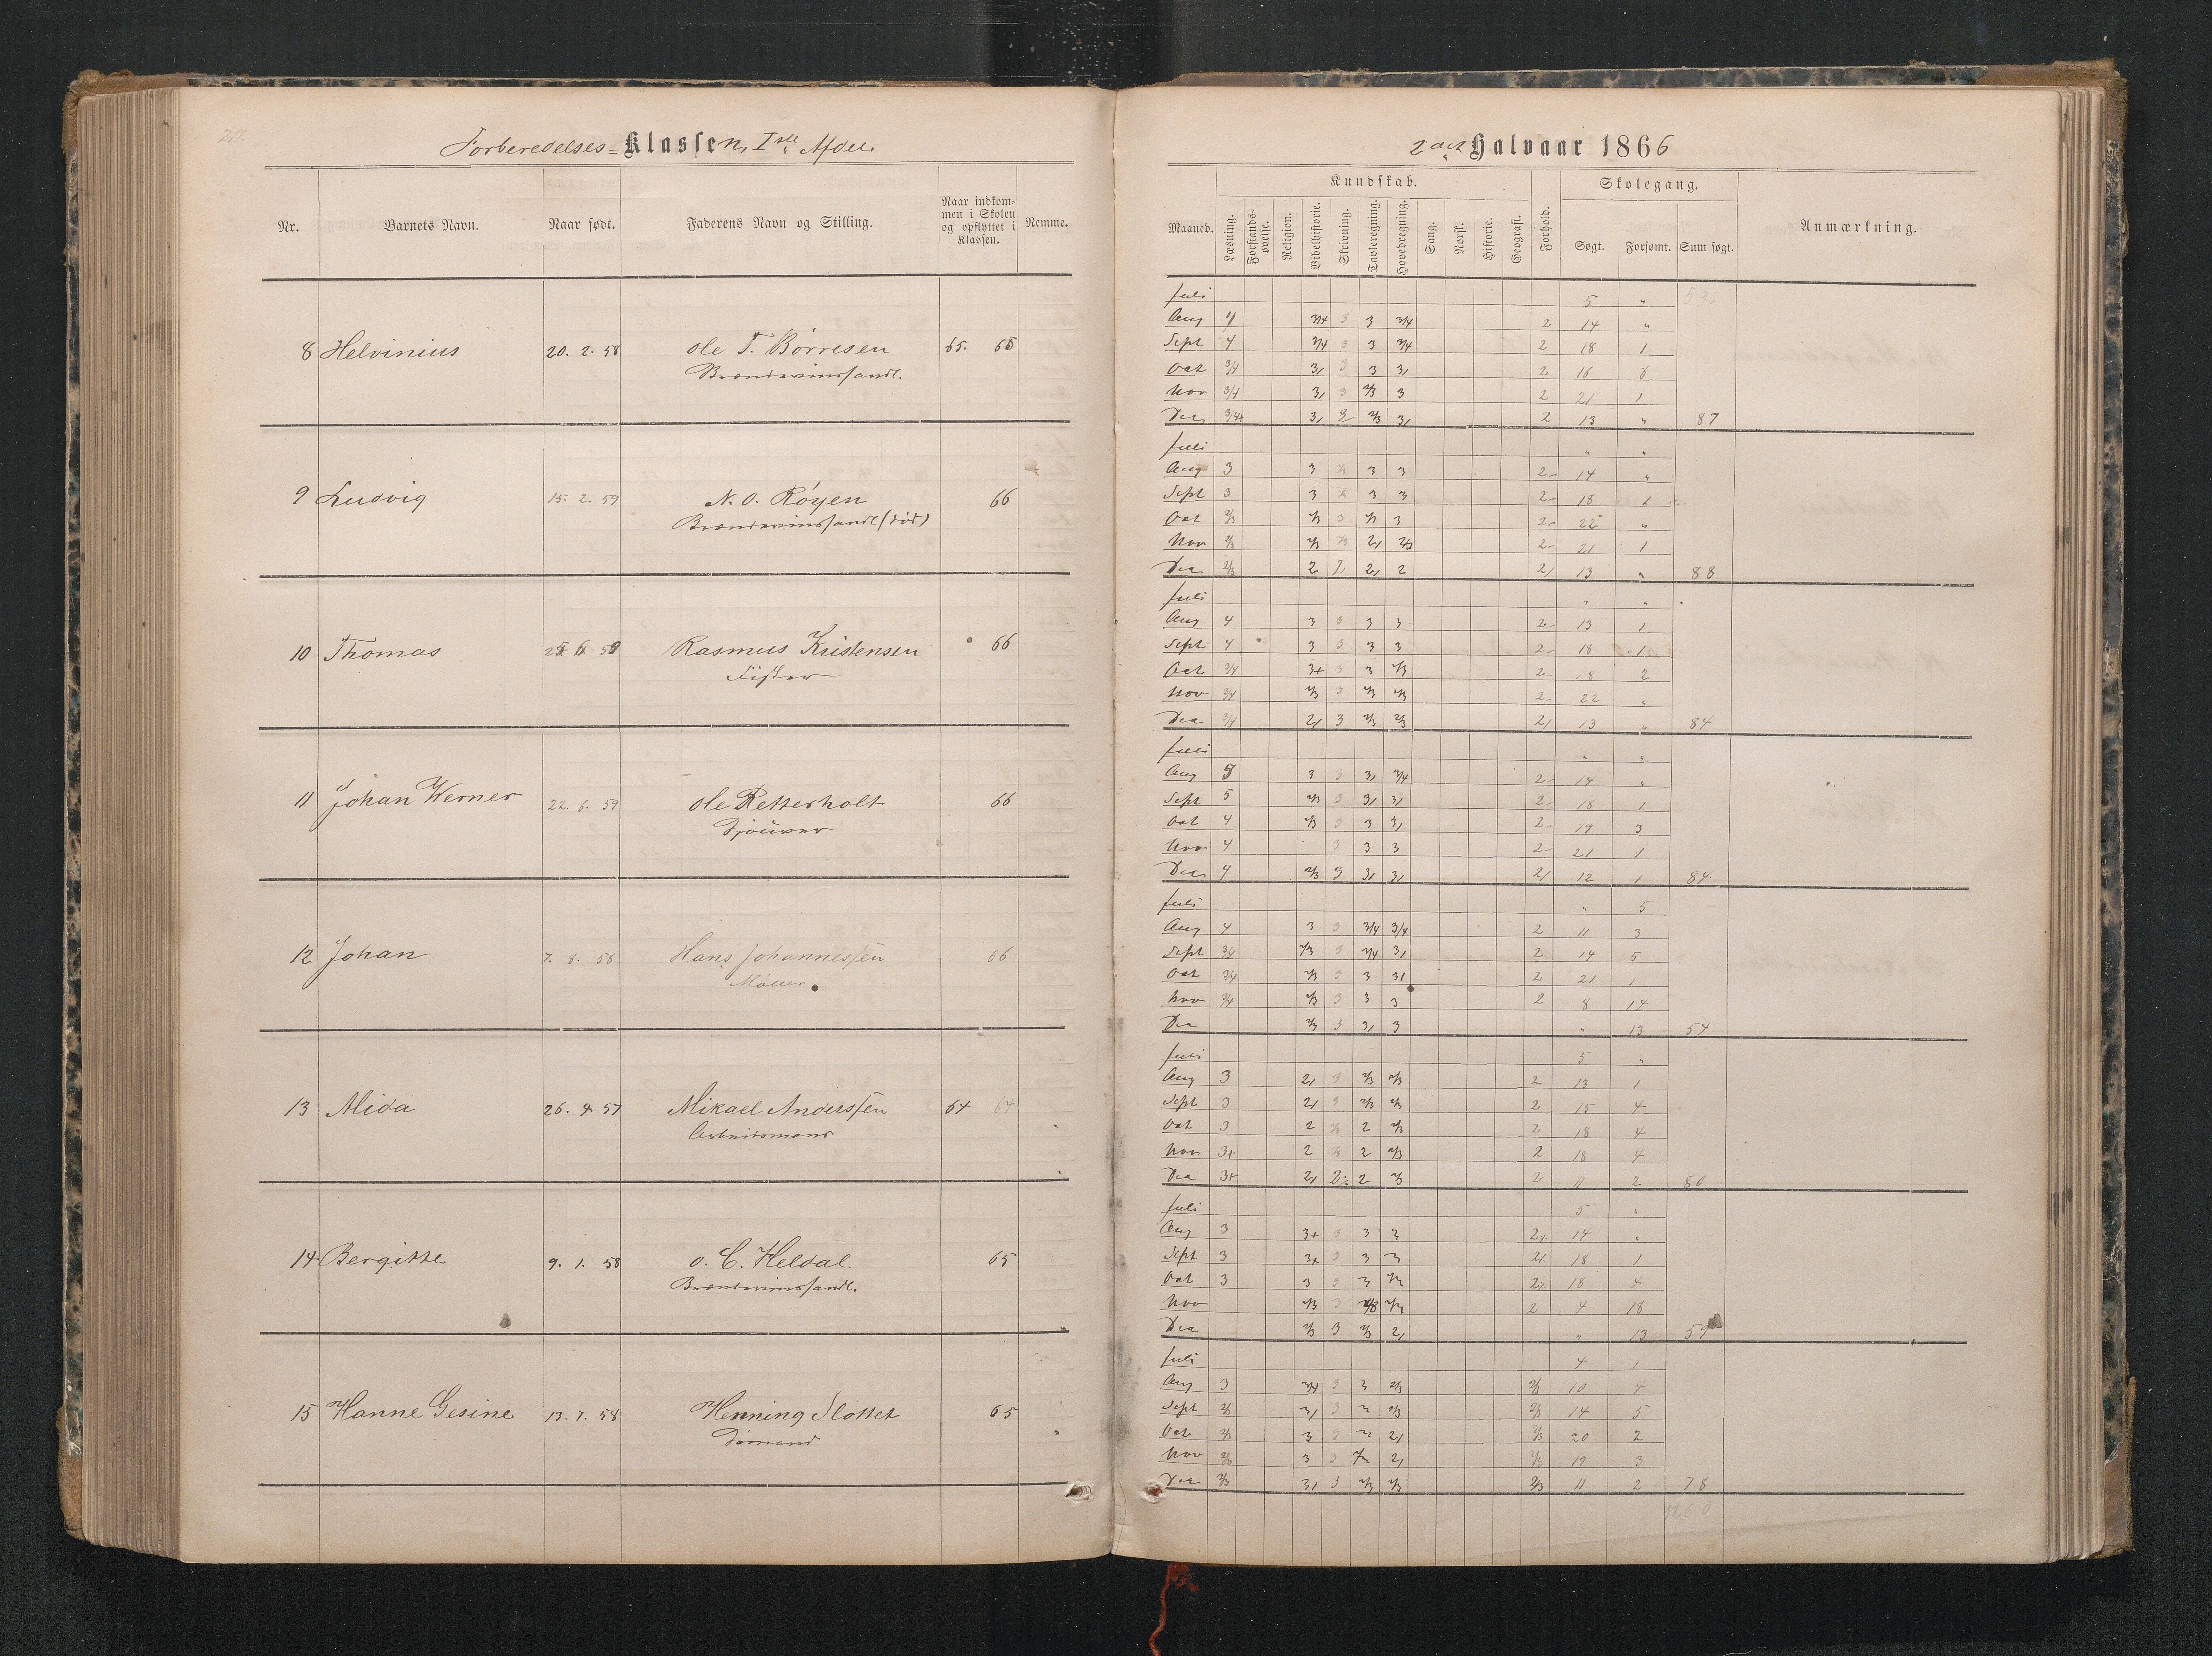 Forberedelses-Klassen, Iste Afdel.
Nr. Barnets Navn. Naar født. Faderens Navn og Stilling. Naar indkommen i Skolen og opflyttet i Klassen. Nemme.
8 Helvinius 20. 2. 58 Ole T. Børresen 65. 65
Brændevinshandl.
9 Ludvig 15. 2. 59 N. O. Røyen 66
Brændevinshandl (død)
10 Thomas Rasmus Kristensen 66
Fisker
11 Johan Werner 22. 6. 59 Ole Retterholt 66
12 Johan 7. 8. 58 Hans Johannessen 66
Møller
13 Alida 26. 4. 57 Mikael Anderssen 64 64
Arbeidsmand
14 Bergitte 9. 1. 58 O. C. Heldal 65
Brændevinshandl.
15 Hanne Gesine 13. 7. 58 Henning Slottet 65
Sømand
2det Halvaar 1866
Kundskab. Skolegang.
Maaned. Læsning. Forstands-øvelse. Religion. Bibelhistorie. Skrivning. Tavleregning. Hovedregning. Sang. Norsk. Historie. Geografi. Forhold. Søgt. Forsømt. Sum søgt. Anmærkning.
Juli 5 "
Aug 4 3/4 3 3 3/4 2 14 "
Sept 4 3/4 3 3 3/4 2 18 1
Oct 3/4 3, 3 3 3, 2 16 6
Nov 3/4 3, 3 2/3 3 2 21 1
Dec 3/4+ 3, 2 2/3 3, 2 13 " 87
Juli " "
Aug 3 3 3 3 2- 14 "
Sept 3 3 3 3 2- 18 1
Oct 2/3 2/3 3 2/3 3 2- 22 "
Nov 2/3 2/3 2, 2/3 2- 21 1
Dec 2/3 2 2 2, 2 2, 13 " 88
Juli " "
Aug 4 3 3 3 3 2- 13 1
Sept 4 3 3 3 3 2- 18 1
Oct 3/4 3+ 3 3 2/3 2- 18 2
Nov 3/4 2/3 3 2/3 2/3 2- 22 "
Dec 3/4 2, 3 2/3 2/3 2, 13 " 84
Juli " "
Aug 5 3 3 3, 3/4 2- 14 "
Sept 5 2/3 3 3, 3, 2- 18 1
Oct 4 2/3 3 3 3, 2- 19 3
Nov 4 3 3 3 2- 21 1
Dec 4 2/3 3 3, 3, 2, 12 1 84
Juli " 5
Aug 4 3 3 3/4 3/4 2 11 3
Sept 3/4 2/3 3 3/4 3, 2 14 5
Oct 3/4 2/3 3 3 3, 2 21 1
Nov 3/4 2/3 3 3 3 2 8 14
Dec 2/3 3 3, 3 " 13 54
Juli 5 "
Aug 3 2, 3 2/3 2/3 2 13 1
Sept 3 2, 3 2/3 2/3 2 15 4
Oct 3 2 2 2/3 2 18 4
Nov 3+ 2 2 2/3 2 18 4
Dec 3+ 2, 2 2 2/3 2 11 2 80
Juli 5 "
Aug 3 3+ 3 3 3 2+ 14 "
Sept 3 3+ 3 3 3 18 1
Oct 3 3 3 3 18 4
Nov 2/3 3 2/3 2 4 18
Dec 2/3 3 2/3 2, " 13 59
Juli 4 1
Aug 3 3/4 3 3 2/3 2/3 10 4
Sept 2/3 3, 3 3 2/3 2/3 14 5
Oct 2/3 3 3 3 2, 2/3 20 2
Nov 2/3 3 3 2, 2/3 19 3
Dec 2/3 3, 3 2/3 2/3 2/3 11 2 78
1260